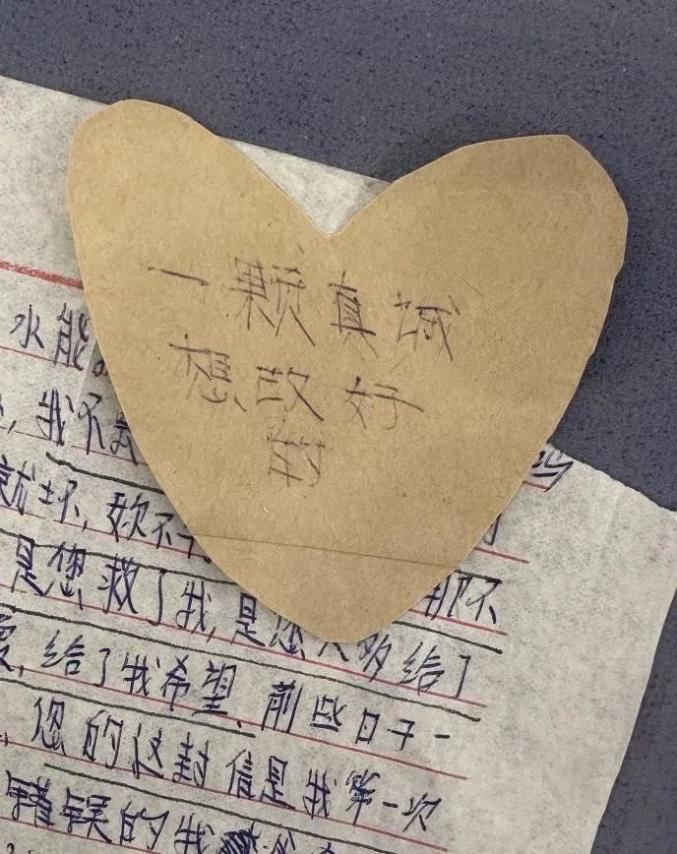 一颗真诚
想改好
的
水能。
，我不敢
就坏，
是您救了我，是您
，给了我希望，前些日子一
，您的这封信是我第一次
错误的我